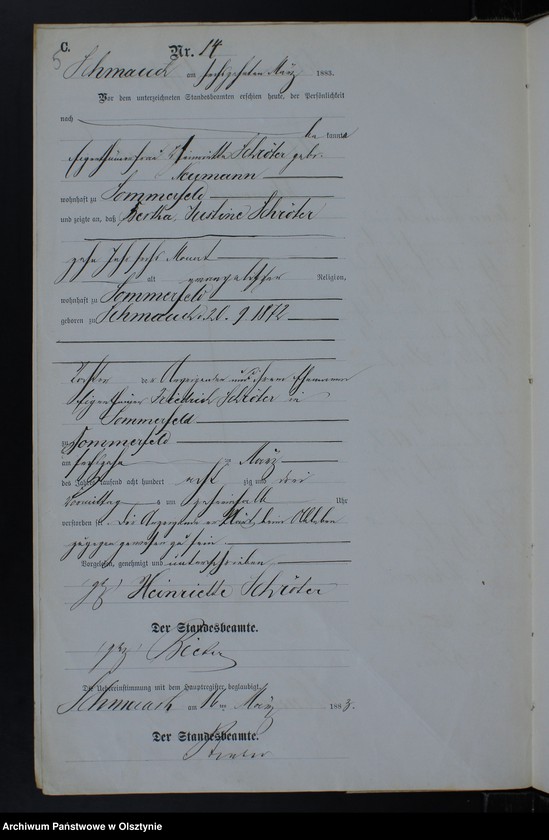 C.
5
Nr. 14
Schmauch am sechszehnten März 1883.
Vor dem unterzeichneten Standesbeamten erschien heute, der Persönlichkeit
nach
bekannte
Eigenthümerfrau Heinriette Schröter geb.
Neumann
wohnhaft zu Sommerfeld
und zeigte an, daß Bertha Justine Schröter
zehn Jahr sechs Monat
alt evangelischer Religion,
wohnhaft zu Sommerfeld
geboren zu Schmauch 9 1872
Tochter des Anzeigenden und ihrem Ehemanne
Eigenthümer Friedrich Schröter in
Sommerfeld
zu Sommerfeld
am März
des Jahres tausend acht hundert acht zig und drei
Vormittag s um Uhr
verstorben sei. Die Anzeigende erklärt beim Ableben
zugegen gewesen zu sein
Vorgelesen, genehmigt und unterschrieben
(gez) Heinriette Schröter
Der Standesbeamte.
(gez)
Die Uebereinstimmung mit dem Hauptregister beglaubigt.
Schmauch am 16ten März 1883.
Der Standesbeamte.
Archiwum Państwowe w Olsztynie